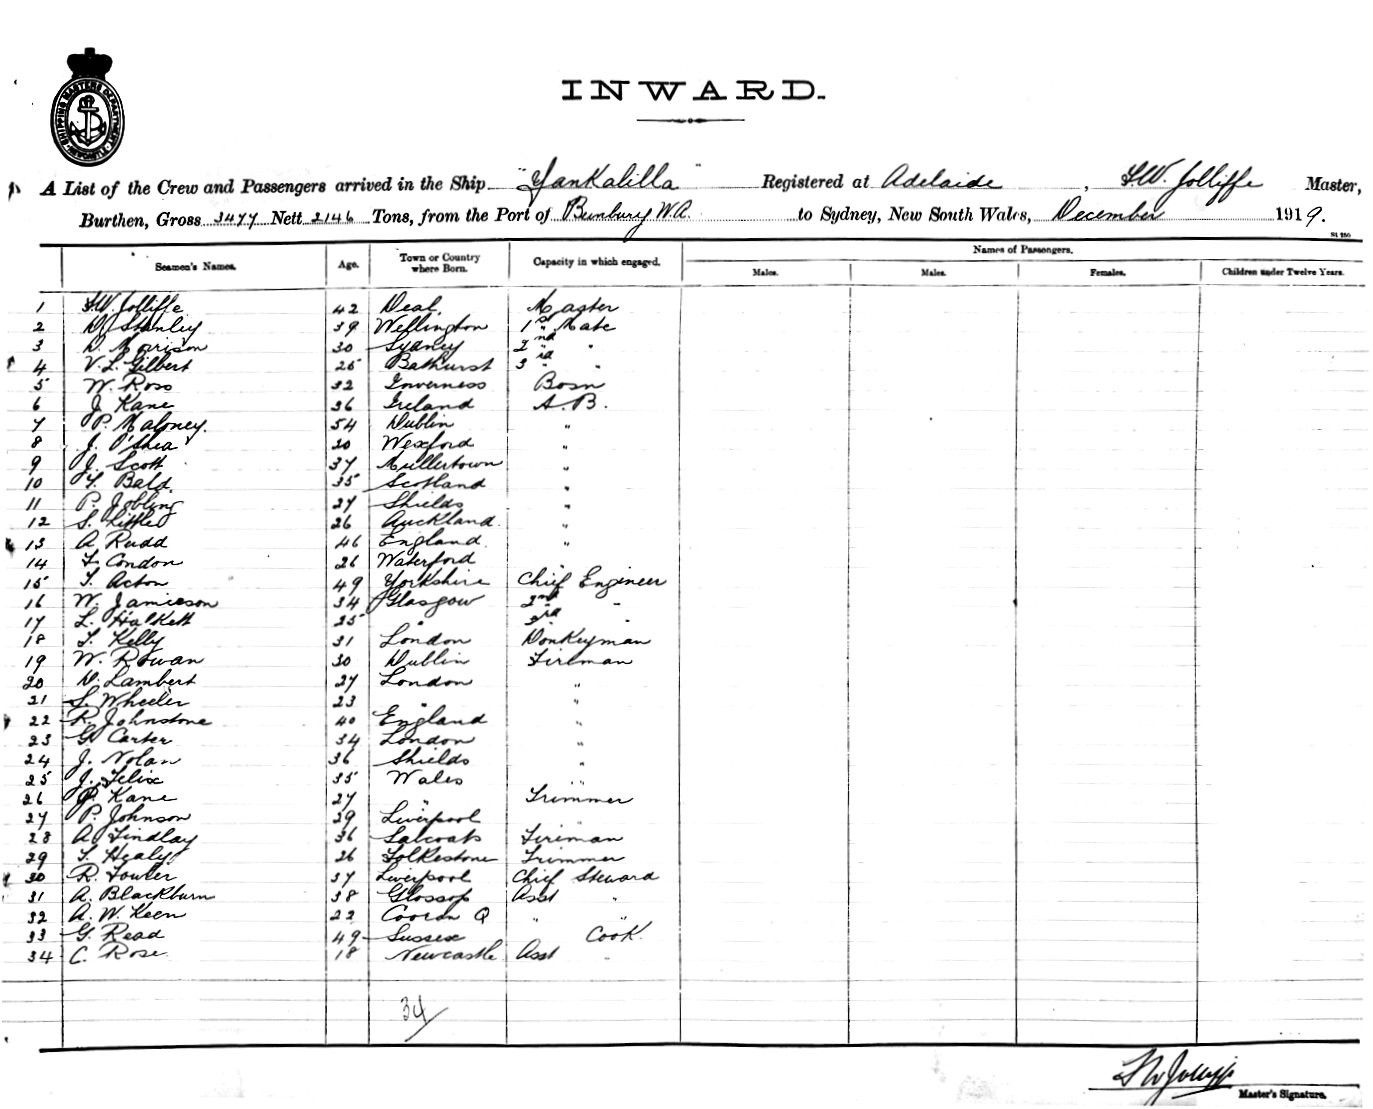 SHIPPING MASTERS DEPARTMENT NEWCASTLE
INWARD.
A List of the Crew and Passengers arrived in the Ship "Yankalilla" Registered at Adelaide, F.W. Jolliffe Master,
Burthen, Gross 3477 Nett 2146 Tons, from the Port of Bunbury W.A. to Sydney, New South Wales, December 1919.
Seamen's Names. Age. Town or Country where Born. Capacity in which engaged. Names of Passengers.
Males. Males. Females. Children under Twelve Years.
1 F.W. Jolliffe 42 Deal. Master
2 D. Stanley 39 Wellington 1st Mate
3 D. Morrison 30 Sydney 2nd "
4 V.L. Gilbert 25 Bathurst 3rd "
5 W. Ross 32 Inverness Bosn
6 J. Kane 36 Ireland A.B.
7 P. Maloney. 54 Dublin "
8 J. O'Shea 20 Wexford "
9 J. Scott 37 Mullertown "
10 F. Bald. 35 Scotland "
11 P. Jobling 27 Shields "
12 S. Little 26 Auckland. "
13 A Rudd 46 England. "
14 F. Condon 26 Waterford "
15 T. Acton 49 Yorkshire Chief Engineer
16 W. Jamieson 34 Glasgow 2nd "
17 L. Halkett 25 " 3rd "
18 T. Kelly 31 London Donkeyman
19 W. Rowan 30 Dublin Fireman
20 D. Lambert 27 London "
21 S. Wheeler 23 " "
22 R. Johnstone 40 England "
23 G. Carter 34 London "
24 J. Nolan 36 Shields "
25 J. Felix 35 Wales "
26 P. Kane 27 " Trimmer
27 P. Johnson 29 Liverpool "
28 A. Findlay 36 Salcoats Fireman
29 T. Healy 26 Folkestone Trimmer
30 R. Fowler 37 Liverpool Chief Steward
31 A. Blackburn 38 Glossop Asst "
32 A. W. Keen 22 Cooran Q " "
33 G. Read 49 Sussex Cook.
34 C. Rose. 18 Newcastle Asst "
34/
F W Jolliffe
Master's Signature.